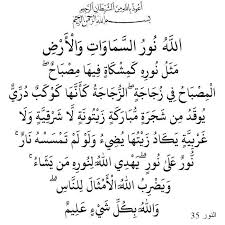 أعوذ بالله من الشيطان الرجيم
بسم الله الرحمن الرحيم
اللَّهُ نُورُ السَّمَاوَاتِ وَالْأَرْضِ
مَثَلُ نُورِهِ كَمِشْكَاةٍ فِيهَا مِصْبَاحٌ ۖ
الْمِصْبَاحُ فِي زُجَاجَةٍ ۖ الزُّجَاجَةُ كَأَنَّهَا كَوْكَبٌ دُرِّيٌّ
يُوقَدُ مِن شَجَرَةٍ مُّبَارَكَةٍ زَيْتُونَةٍ لَّا شَرْقِيَّةٍ وَلَا
غَرْبِيَّةٍ يَكَادُ زَيْتُهَا يُضِيءُ وَلَوْ لَمْ تَمْسَسْهُ نَارٌ ۚ
نُّورٌ عَلَىٰ نُورٍ ۗ يَهْدِي اللَّهُ لِنُورِهِ مَن يَشَاءُ ۚ
وَيَضْرِبُ اللَّهُ الْأَمْثَالَ لِلنَّاسِ ۗ
وَاللَّهُ بِكُلِّ شَيْءٍ عَلِيمٌ
النور 35